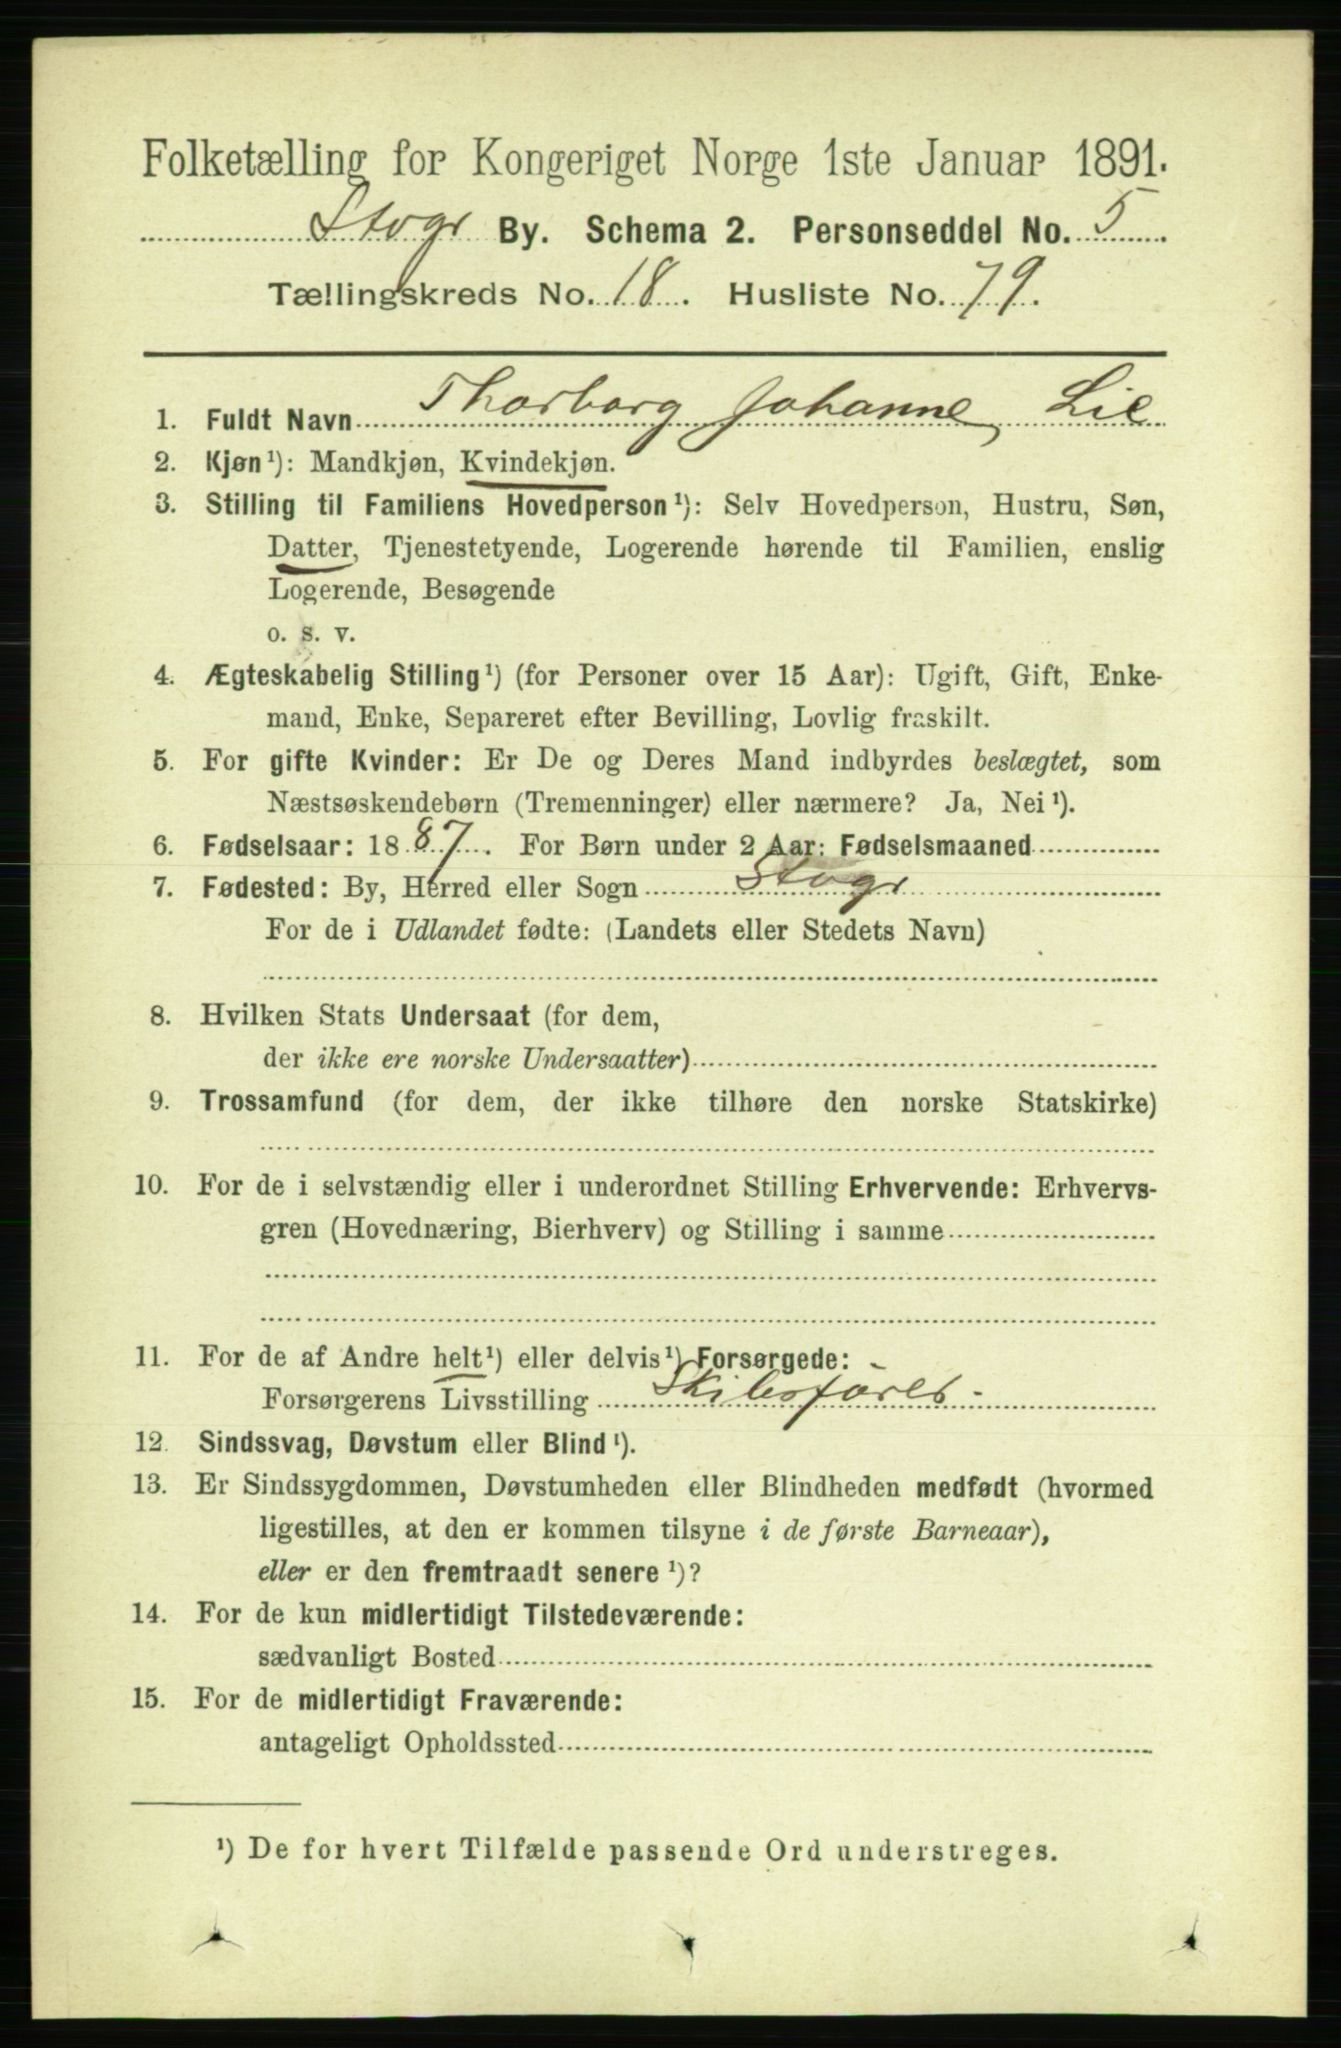 Folketælling for Kongeriget Norge 1ste Januar 1891.
Stvgr By. Schema 2. Personseddel No. 5
Tællingskreds No. 18. Husliste No. 79.
1. Fuldt Navn Thorborg Johanne Lie
2. Kjøn¹): Mandkjøn, Kvindekjøn.
3. Stilling til Familiens Hovedperson¹): Selv Hovedperson, Hustru, Søn,
Datter, Tjenestetyende, Logerende hørende til Familien, enslig
Logerende, Besøgende
o. s. v.
4. Ægteskabelig Stilling¹) (for Personer over 15 Aar): Ugift, Gift, Enke-
mand, Enke, Separeret efter Bevilling, Lovlig fraskilt.
5. For gifte Kvinder: Er De og Deres Mand indbyrdes beslægtet, som
Næstsøskendebørn (Tremenninger) eller nærmere? Ja, Nei¹).
6. Fødselsaar: 1887. For Børn under 2 Aar: Fødselsmaaned
7. Fødested: By, Herred eller Sogn Stvgr
For de i Udlandet fødte: (Landets eller Stedets Navn)
8. Hvilken Stats Undersaat (for dem,
der ikke ere norske Undersaatter)
9. Trossamfund (for dem, der ikke tilhøre den norske Statskirke)
10. For de i selvstændig eller i underordnet Stilling Erhvervende: Erhvervs-
gren (Hovednæring, Bierhverv) og Stilling i samme
11. For de af Andre helt¹) eller delvis¹) Forsørgede:
Forsørgerens Livsstilling Skibsfører
12. Sindssvag, Døvstum eller Blind¹).
13. Er Sindssygdommen, Døvstumheden eller Blindheden medfødt (hvormed
ligestilles, at den er kommen tilsyne i de første Barneaar),
eller er den fremtraadt senere¹)?
14. For de kun midlertidigt Tilstedeværende:
sædvanligt Bosted
15. For de midlertidigt Fraværende:
antageligt Opholdssted
¹) De for hvert Tilfælde passende Ord understreges.